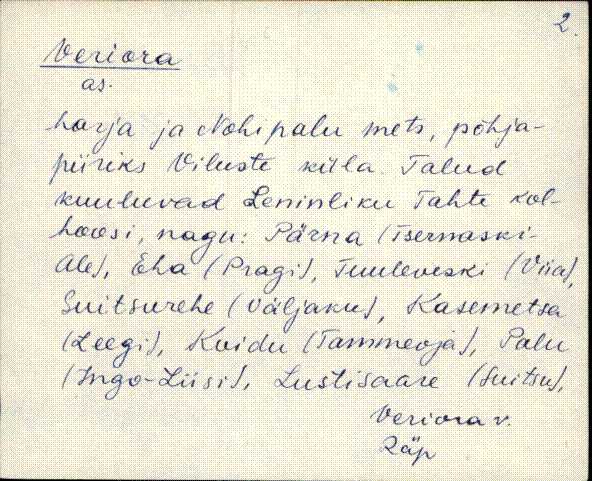 2.
Veriora
as.
harja ja Nohipalu mets, põhja-
piiriks Viluste küla. Talud
kuuluvad Leninliku Tahte kol-
hoosi, nagu: Pärna (Tsernaski-
Ale), Eha (Pragi), Tuuleveski (Viia),
Suitsurehe (Väljaku), Kasemetsa
(Leegi), Koidu (Tammeoja), Palu
(Ingo-Liisi), Lustisaare (Suitsu),
Veriora v.
Räp